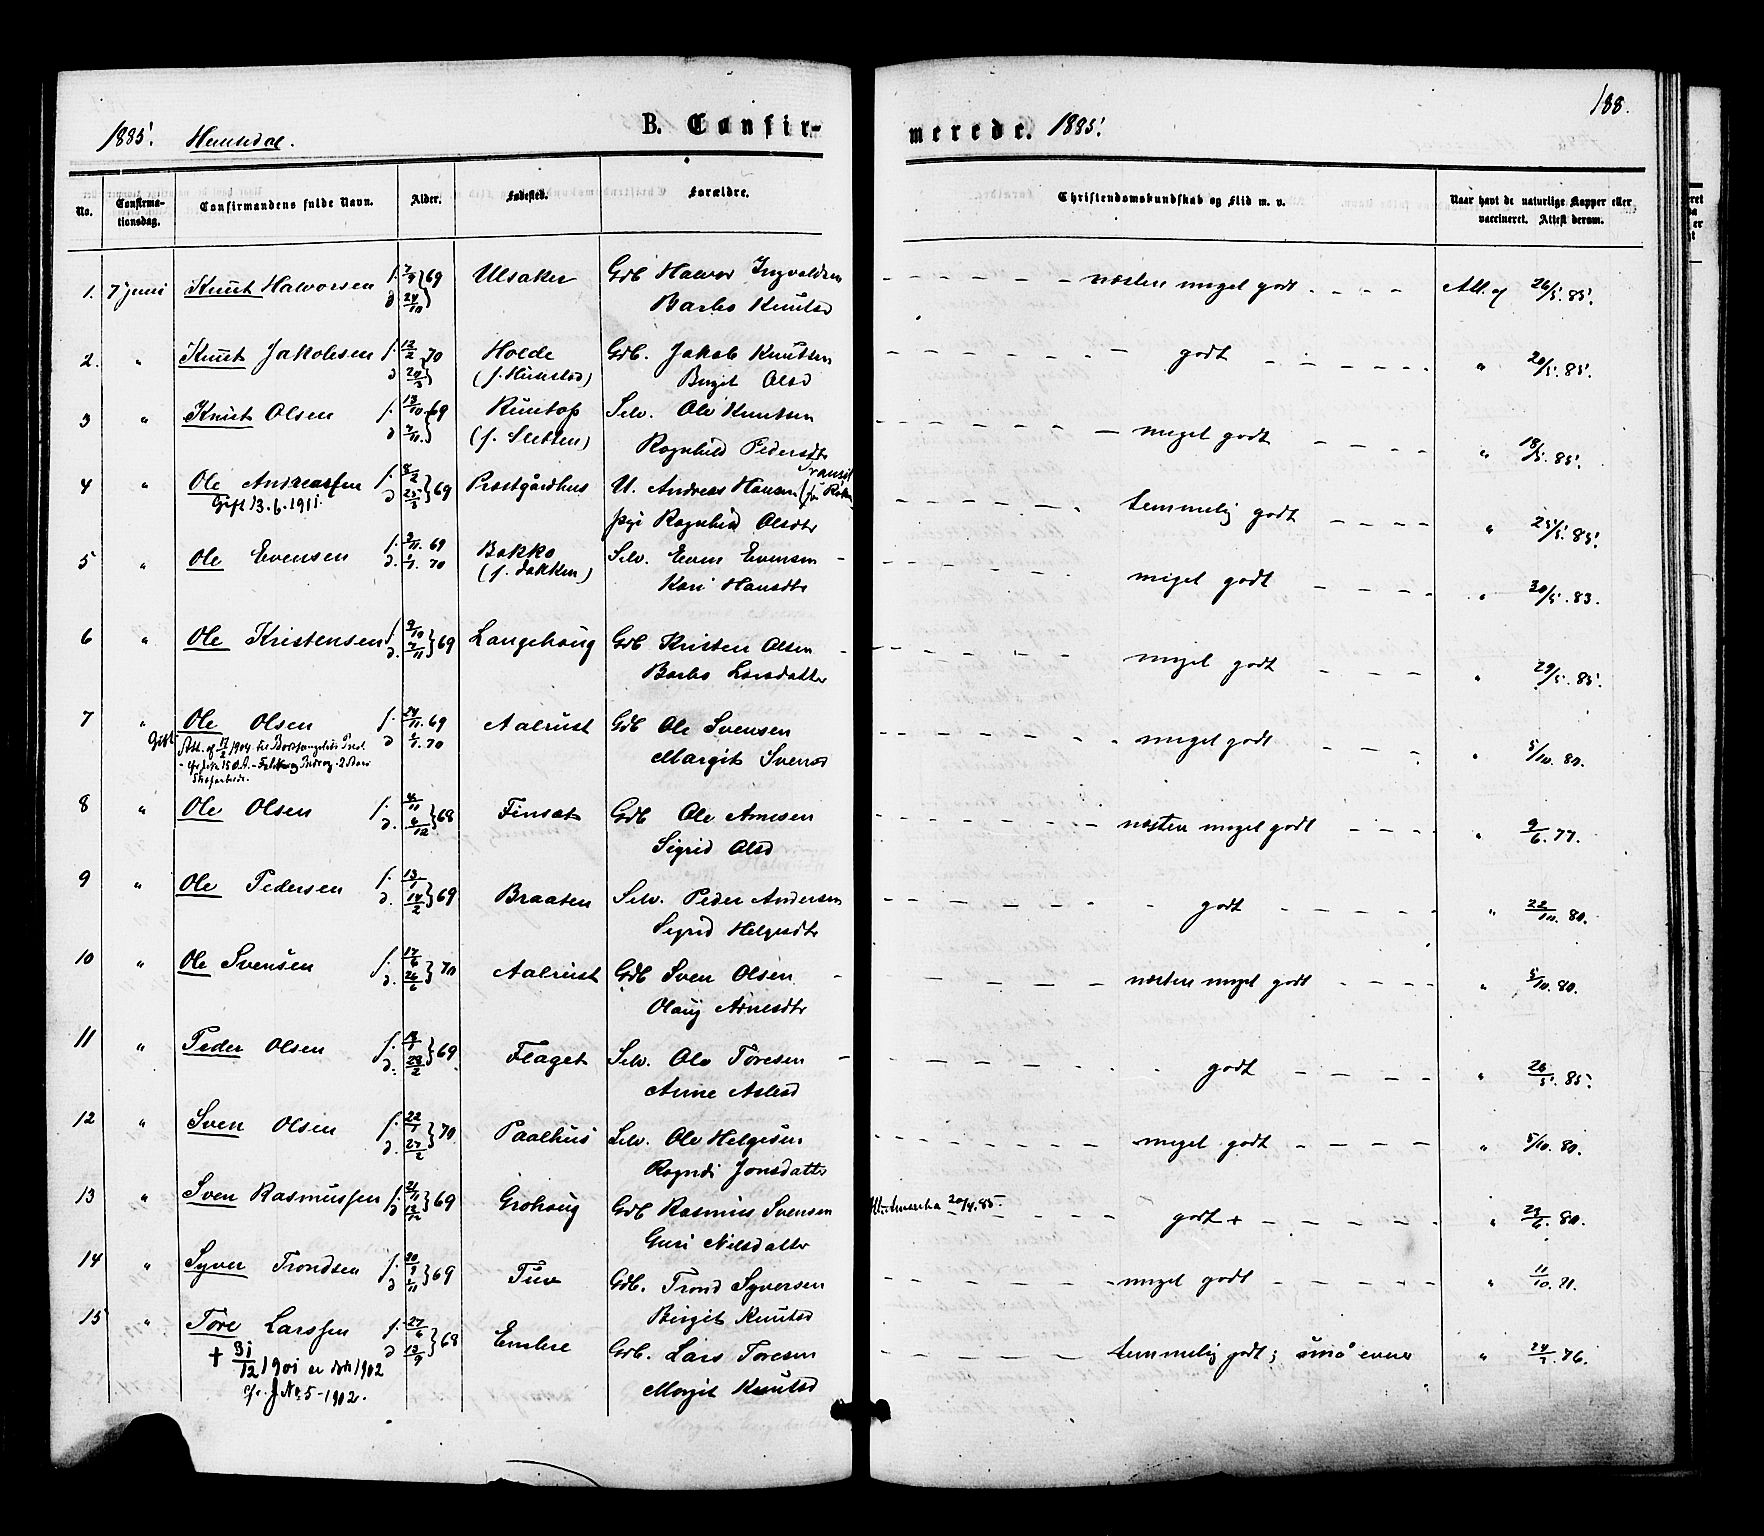 188.
1885. Hemsedal.
B. Confirmerede. 1885.
No. Confirmationsdag. Confirmandens fulde Navn. Alder. Fødested. Forældre. Christendomskundskab og Flid m. v. Naar havt de naturlige Kopper eller vaccineret. Attest derom.
1. 7 juni Knut Halvorsen f. 7/9 69 Ulsaker Gdb Halvor Ingvaldsen nesten meget godt Att. af 26/5. 85.
d. 24/10 Barbo Knutsd
2. " Knut Jakobsen f. 12/2 70 Holde Gdb. Jakob Knutsen godt " 20/5. 85.
d 20/3 Birgit Olsd
3 " Knut Olsen f. 13/10 69 Selv. Ole Knutsen meget godt " 18/5. 85.
d 7/11. Rognhild Pedersdtr
4 " Ole Andreassen f. 8/2 69 Prestgårdhus U. Andreas Hansen temmelig godt " 25/5. 85.
Gift 13.6.1911. d 25/3 pige Rognhild Olsdtr
5 " Ole Evensen f. 69 Bakko Selv. Even Evensen meget godt " 30/5. 83.
d. 70 (f. Bakken) Kari Hansdtr
6 " Ole Kristensen f 9/10 69 Langehaug Gdb Kristen Olsen meget godt " 29/5. 85.
d. 7/11 Barbo Larsdatter
7 " Ole Olsen f. 24/11. 69 Aalrust Gdb Ole Svensen meget godt " 5/10. 80.
Gift d 70 Margit Svensd
8 " Ole Olsen f. 4/11 68 Finset Gdb Ole Arnesen nesten meget godt " 9/6. 77.
d. 6/12 Sigrid Olsd
9 " Ole Pedersen f. 13/1 69 Braaten Selv. Peder Andersen godt " 22/10. 80.
d. 14/2 Sigrid Helgesdtr
10 " Ole Svensen f. 17/6 70 Aalrust Gdb Sven Olsen nesten meget godt " 5/10. 80.
d. 26/6 Olaug Arnesdtr
11 " Peder Olsen f. 69 Flaget Selv. Ole Toresen godt " 26/5. 85.
d. 28/2 Anne Aslesd
12 " Sven Olsen f. 22/1 70 Paalhus Selv. Ole Helgesen meget godt " 5/10. 80.
d 27/2 Rogndi Jonsdatter
13 " Sven Rasmussen f. 21/11 69 Grohaug Gdb Rasmus Svensen Att. Amerika 20/4. 85. godt + " 23/6. 80.
d 12/12 Guri Nilsdatter
14 " Syver Trondsen f. 30/9 69 Tuv Gdb. Trond Syversen meget godt " 11/10. 81.
d Birgit Knutsd
15 " Tore Larssen f. 27/6 68 Embre Gdb. Lars Toresen temmelig godt; små evner " 76.
d 13/9 Margit Knutsd
+ 31/12 1901 1902
cfr. J No. 5-1902.